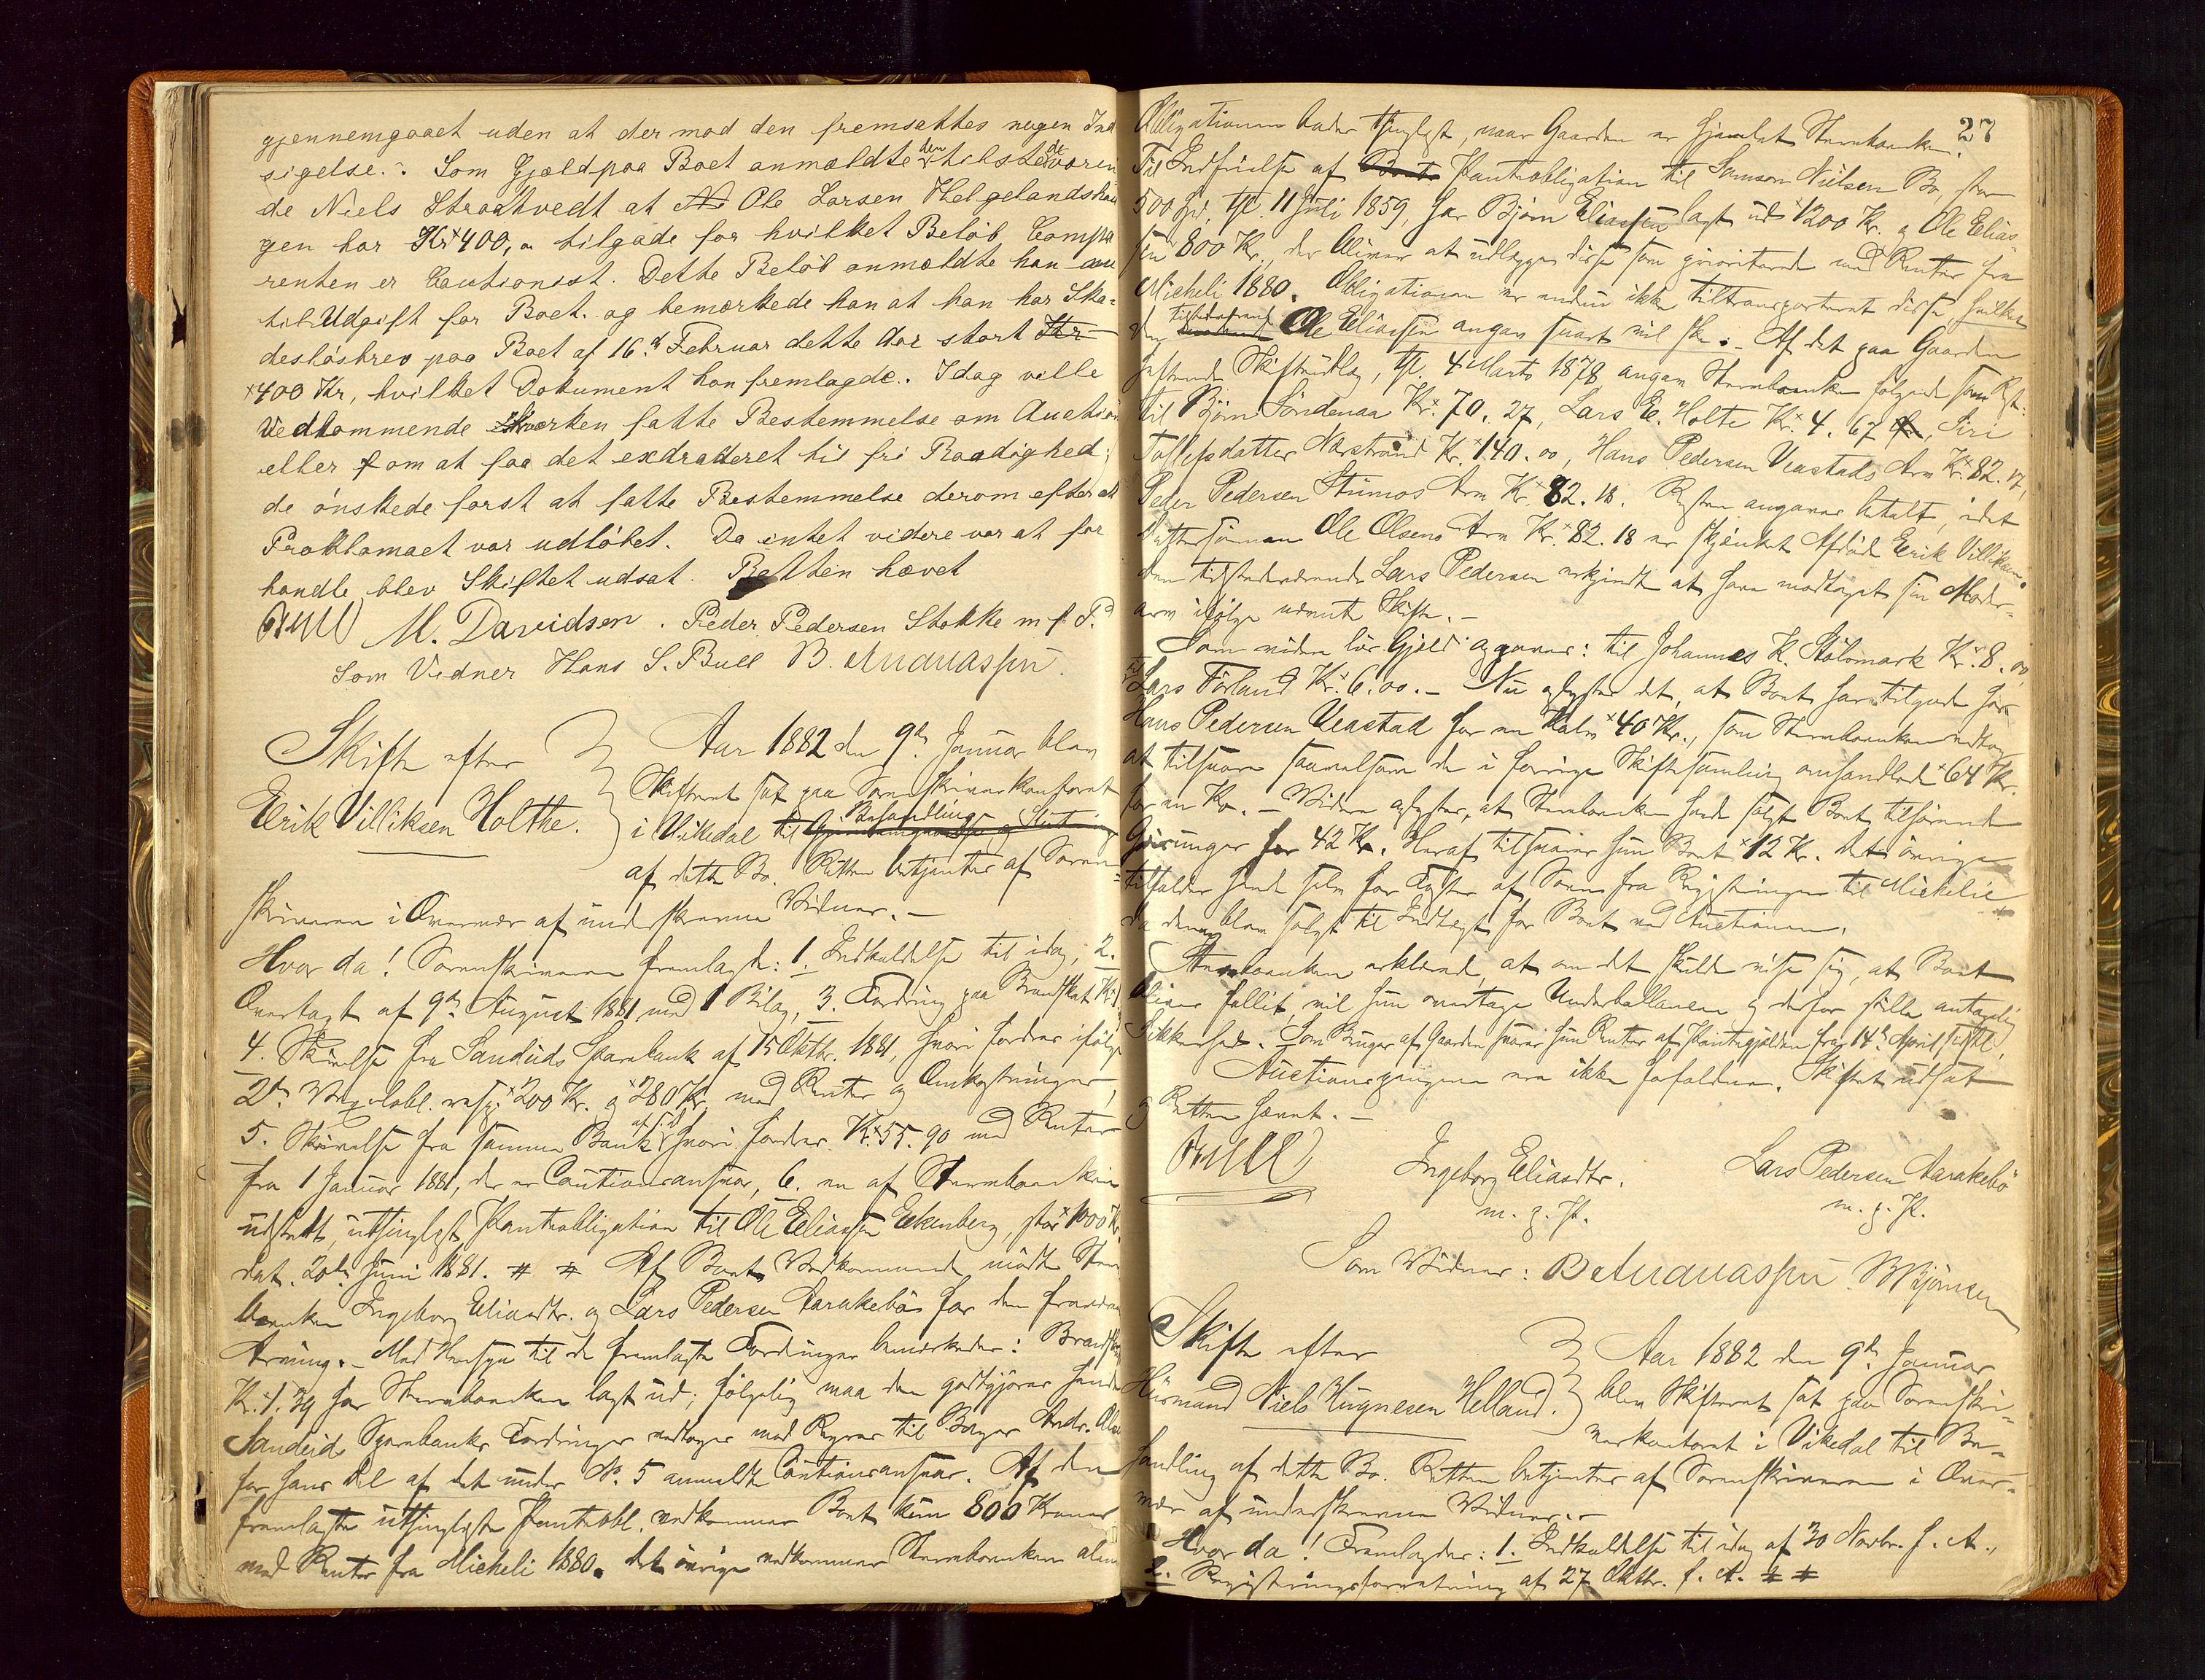 gjennemgaaet uden at der mod den fremsattes nogen Ind
sigelse. Som Gjæld paa Boet anmældte den tilstedeværen
de Niels Straatvedt at Ole Larsen Helgelandshau
gen har Kr 400, tilgode for hvilket Beløb Compa
renten er Cautionist. Dette Beløb anmældte han
til Udgift for Boet. og bemærkede han at han har Ska-
desløsbrev paa Boet af 16d Februar dette Aar stort
400 Kr, hvilket Dokument han fremlagde. Idag vilde
Vedkommende hverken fatte Bestemmelse om Auction
eller om at faa det extraderet til fri Raadighed;
de ønskede først at fatte Bestemmelse derom efter at
Proklamaet var udløbet. Da intet videre var at for
handle blev Skiftet udsat. Retten hævet
Bull M. Davidsen. Peder Pedersen Stokke m f. P.
Som Vidner Hans S. Bull B. Andreassen
Skifte efter
Erik Villiksen Holthe.
Aar 1882 den 9de Januar blev
Skifteret sat paa Sorenskriverkontoret
i Vikedal til Behandling
af dette Bo. Retten betjentes af Soren-
skriveren i Overvær af underskrevne Vidner. –
Hvor da! Sorenskriveren fremlagde: 1. Indkaldelse til idag, 2.
Overtagt af 9de August 1881 med 1 Bilag, 3. Fordring paa Brandskat Kr 1.
4. Skrivelse fra Sandeids Sparebank af 15 Oktbr. 1881, hvori fordres ifølge
2de Vexelobl. resp. 200 Kr. og 280 Kr. med Renter og Omkostninger,
5. Skrivelse fra samme Bank hvori fordres Kr. 55.90 med Renter
fra 1 Januar 1881, der er Cautionsansvar, 6. en af Stervboenken
udstedt, utinglyst Panteobligation til Ole Eliassen Eikenberg, stor 1000 Kr.
dat. 20de Juni 1881. Af Boets Vedkommende mødte Sterv-
boenken Ingeborg Eliasdtr. og Lars Pedersen Aarakebø for den fraværende
Arving. – Med Hensyn til de fremlagte Fordringer bemærkedes: Brandskat
Kr. 1.39 har Stervboenken lagt ud; følgelig maa den godtgjøres hende
Sandeid Sparebanks Fordringer vedtages med Regres til Bager Andr.
for hans Del af det under No. 5 anmeldte Cautionsansvar. Af den
fremlagte utinglyste Panteobl. vedkommer Boet kun 800 Kroner
med Renter fra Micheli 1880. Det øvrige vedkommer Stervboenken alene
27
Obligationen bedes tinglyst, naar Gaarden er hjemlet Stervboenken.
Til Indfrielse af Panteobligation til Samson Nielsen Bø, stor
500 Spd, tgl. 11 Juli 1859, har Bjørn Eliassen lagt ud 1200 Kr. og Ole Elias-
sen 800 Kr., der bliver at udlægge disse som prioriterede med Renter fra
Micheli 1880. Obligationen er endnu ikke tiltransporteret disse, hvilket
den tilstedeværende Ole Eliassen angav snart vil ske. – Af det paa Gaarden
heftende Skifteudlæg, tgl. 4 Marts 1878 angav Stervboenken følgende som Rest:
til Bjørn Søndenaa Kr. 70.27, Lars E. Holte Kr. 4.67, Siri
Tollefsdatter Nærstrand Kr. 140.00, Hans Pedersen Veastads Arv Kr. 82.17,
Peder Pedersen Stumos Arv Kr. 82.18. Resten angaves betalt, idet
Dattersønnen Ole Olsens Arv Kr. 82.18 er skjænket Afdøde Erik Villiksen.
Den tilstedeværende Lars Pedersen erkjendte at have modtaget sin Moder-
arv ifølge nævnte Skifte. –
Som videre løs Gjæld opgaves: til Johannes K. Stølsmark Kr. 8.00,
til Lars Førland Kr. 6.00. – Nu oplystes det, at Boet har tilgode hos
Hans Pedersen Veastad for en Kalv 40 Kr., som Stervboenken vedtog
at tilsvare saavelsom de i forrige Skiftesamling omhandlede 64 Kr.
for en Ko. – Videre oplystes, at Stervboenken havde solgt Boet tilhørende
Geiunger for 42 Kr. Heraf tilsvarer hun Boet 12 Kr. Det øvrige
tilfalder hende selv for Foster af Søerne fra Registreringen til Michelie
da den blev solgt til Indtægt for Boet ved Auctionen.
Stervboenken erklærede, at om det skulde vise sig, at Boet
bliver fallit, vil hun overtage Underballancen og derfor stille antagelig
Sikkerhed. Som Bruger af Gaarden svarer hun Renter af Pantegjælden fra 14de April
Auctionspengene ere ikke forfaldne. Skiftet udsat
og Retten hævet. –
Bull
Ingeborg Eliasdtr.
m. p. P.
Lars Pedersen Aarakebø
m. p. P.
Som Vidner: B Andreassen. Bjørnsen
Skifte efter
Husmand Niels Hugnesen Helland.
Aar 1882 den 9de Januar
blev Skifteret sat paa Sorenskri-
verkontoret i Vikedal til Be-
handling af dette Bo. Retten betjentes af Sorenskriveren i Over-
vær af underskrevne Vidner. –
Hvor da! Fremlagdes: 1. Indkaldelse til idag af 30 Novbr. f. A.,
2. Registreringsforretning af 27 Oktbr. f. A.